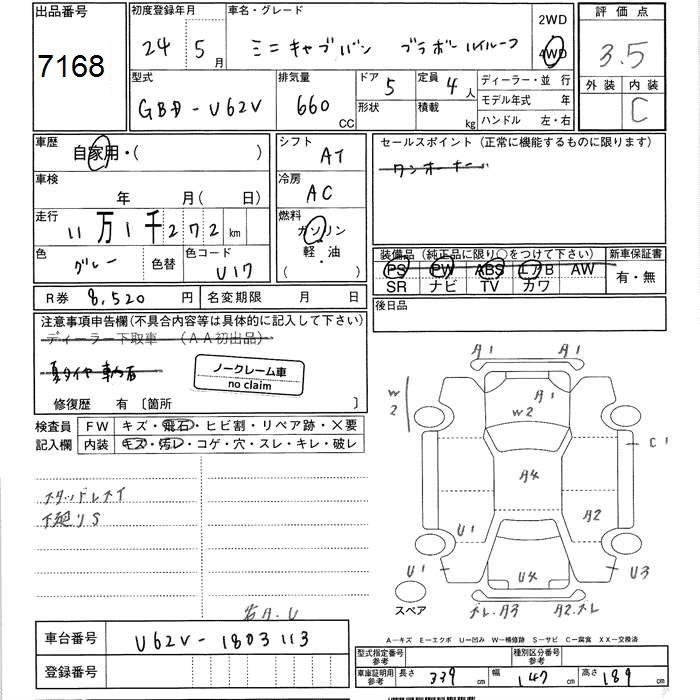 出品番号
7168
初度登録年月
24 5月
車名・グレード
ミニキャブバン ブラボーハイルーフ
2WD
4WD
評価点
3.5
外装 内装
C
型式
GBD-U62V
排気量
660 CC
ドア 5
形状
定員 4人
積載 kg
ディーラー・並行
モデル年式 年
ハンドル 左・右
車歴
自家用・( )
シフト
AT
セールスポイント(正常に機能するものに限ります)
ワンオーナー
車検
年 月(日)
冷房
AC
走行
11万1千272km
燃料
ガソリン
軽・油
( )
色
グレー
色替
色コード
U17
装備品(純正品に限り○をつけて下さい)
PS PW ABS エアB AW
SR ナビ TV カワ
新車保証書
有・無
R券 8,520円
名変期限 月 日
後日品
注意事項申告欄(不具合内容等は具体的に記入して下さい)
ディーラー下取車 (AA初出品)
夏タイヤ
ノークレーム車
no claim
修復歴 有〔箇所 〕
検査員
記入欄
FW キズ・飛石・ヒビ割・リペア跡・X要
内装 キズ・汚レ・コゲ・穴・スレ・キレ・破レ
スタッドレスタイ
下廻りS
A1 A1
W2
A1
W2
C1
A4
A2
U1
U1
U4
U3
スペア
A3
A2
A-キズ E-エクボ U-凹み W-補修跡 S-サビ C-腐食 XX-交換済
車台番号
U62V-1803113
登録番号
型式指定番号
参考
種別区分番号
参考
車庫証明用
参考
長さ 339cm
幅 147cm
高さ 189cm